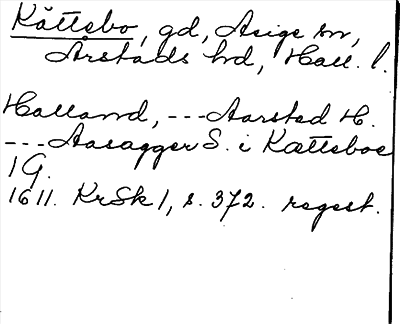 Kåttsbo, gd, Asige sn,
Årstads hd, Hall. l.
Halland, --- Aarsted H.
--- Aasagger S. i Kættsboe
1 G.
1611. KrSk 1, s. 372. regest.